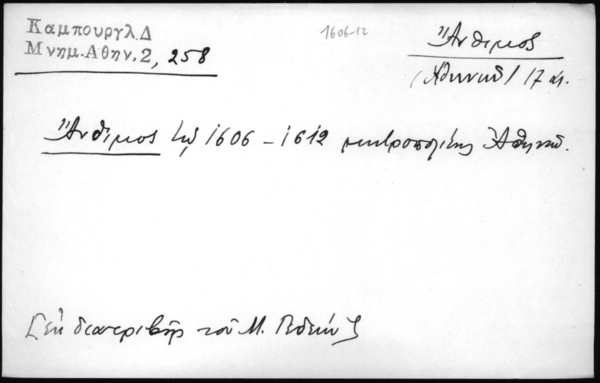 Καμπουργλ.Δ
Μνημ.Αθην.2, 258
1606-12
Ἄνθιμος
/Ἀθηνῶν/ 17 αι.
Ἄνθιμος τῷ 1606-1612 μητροπολίτης Ἀθηνῶν.
[Ἐκ διατριβῆς τοῦ Μ. Γεδεών]